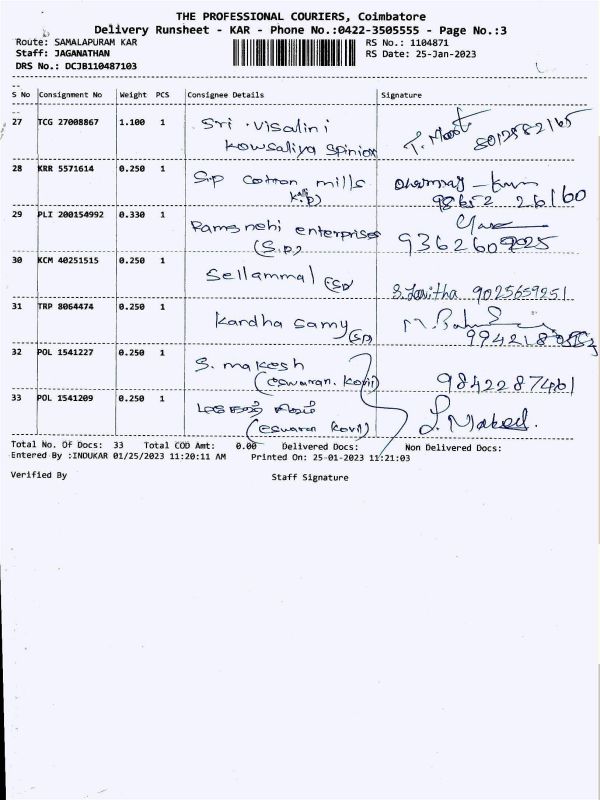 THE PROFESSIONAL COURIERS, Coimbatore
Delivery Runsheet - KAR - Phone No.:0422-3505555 - Page No.:3
Route: SAMALAPURAM KAR RS No.: 1104871
Staff: JAGANATHAN RS Date: 25-Jan-2023
DRS No.: DCJB110487103
S No Consignment No Weight PCS Consignee Details Signature
27 TCG 27008867 1.100 1 Sri .Visalini
Kowsaliya Spinion 8012582165
28 KRR 5571614 0.250 1 Sip cotton mills
98652 26160
29 PLI 200154992 0.330 1 Ramsnehi enterprises
(S.P) 9362609225
30 KCM 40251515 0.250 1 Sellammal (SP)
S. Lavitha 9025659251
31 TRP 8064474 0.250 1 Kandha samy (SP)
32 POL 1541227 0.250 1 S. makesh
(eswaran. Kovil) 9842287461
33 POL 1541209 0.250 1
(eswaran Kovil)
Total No. Of Docs: 33 Total COD Amt: 0.00 Delivered Docs: Non Delivered Docs:
Entered By :INDUKAR 01/25/2023 11:20:11 AM Printed On: 25-01-2023 11:21:03
Verified By Staff Signature